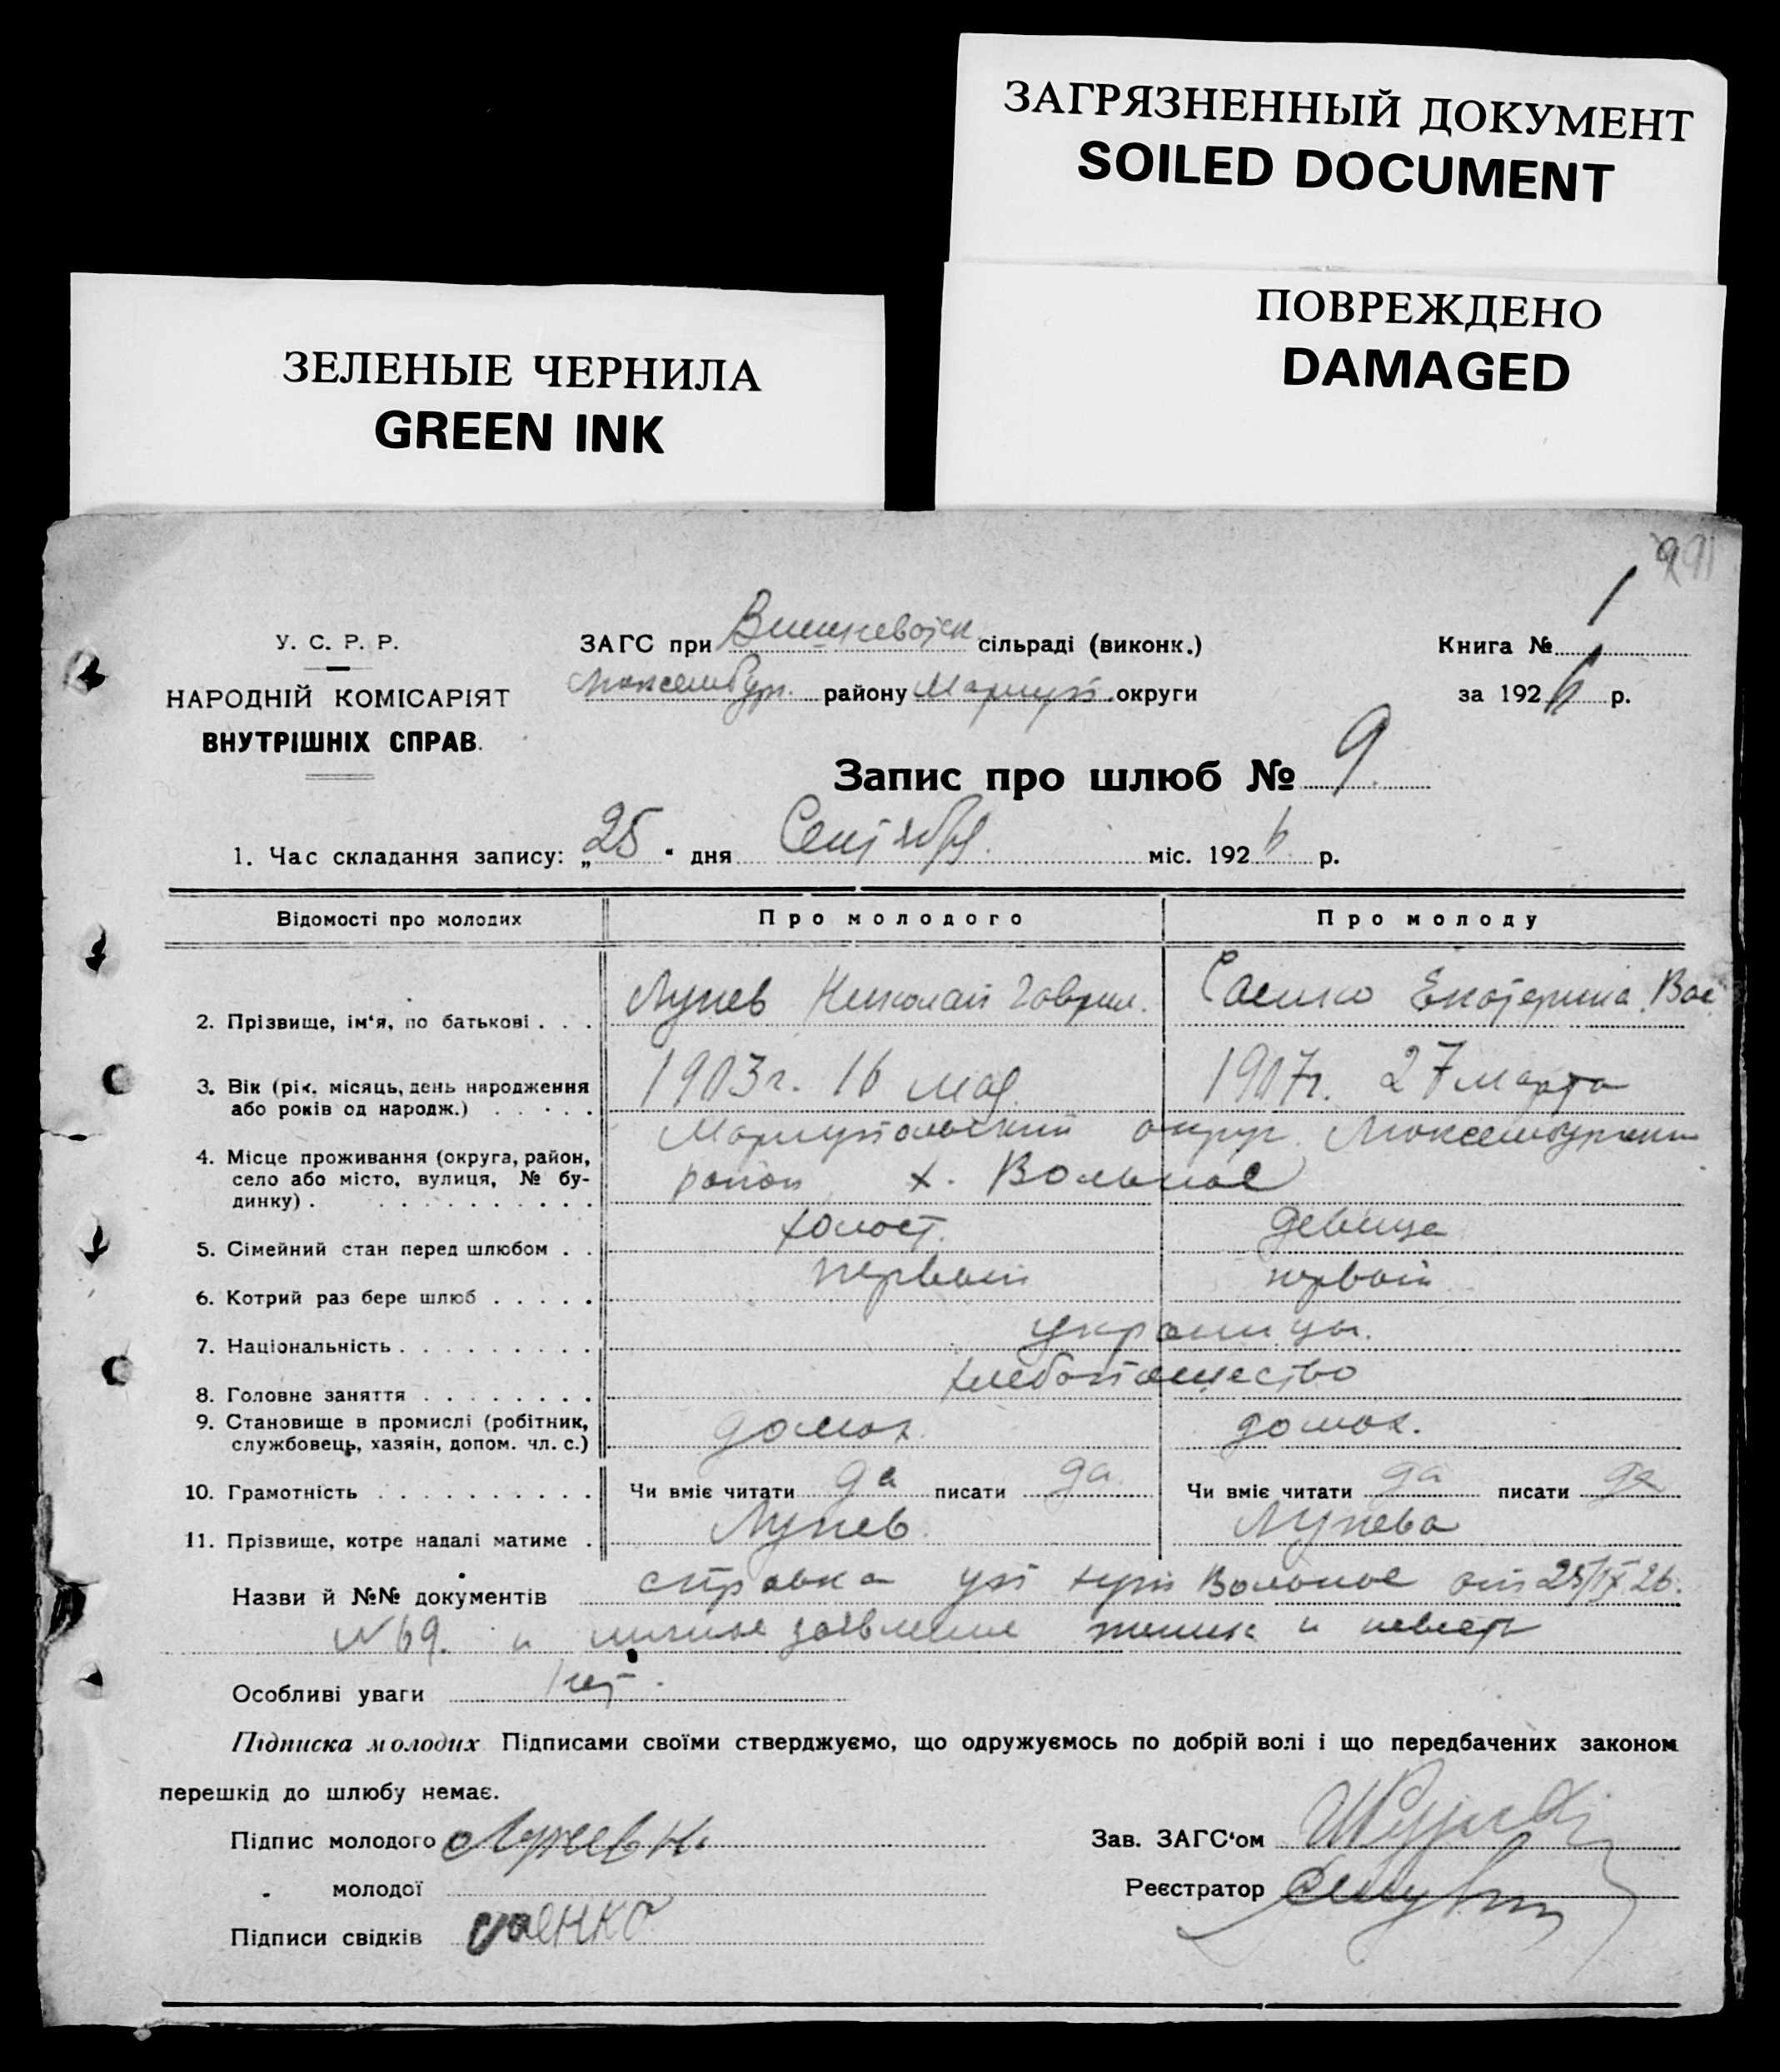 ЗАГРЯЗНЕННЫЙ ДОКУМЕНТ
SOILED DOCUMENT
ПОВРЕЖДЕНО
DAMAGED
ЗЕЛЕНЫЕ ЧЕРНИЛА
GREEN INK
У. С. Р. Р.
НАРОДНІЙ КОМІСАРІЯТ
ВНУТРІШНІХ СПРАВ.
ЗАГС при сільраді (виконк.)
Люксембур. району Мариуп. округи
Книга № 1
за 1926 р.
Запис про шлюб № 9.
1. Час складання запису: „25" дня Сентября. міс. 1926 р.
Відомості про молодих Про молодого Про молоду
2. Прізвище, ім'я, по батькові . . . Лунев Николай Гаврил. Екатерина Вас.
3. Вік (рік, місяць, день народження
або років од народж.) . . . . . 1903г. 16 мая. 1907г. 27 марта
4. Місце проживання (округа, район,
село або місто, вулиця, № бу-
динку) . . . . . . . . . . .
Мариупольский округ. Люксембургский
район х. Вольное
5. Сімейний стан перед шлюбом . . холост. девица
6. Котрий раз бере шлюб . . . . . первый первый
7. Національність . . . . . . . . . украинцы.
8. Головне заняття . . . . . . . . хлебопашество
9. Становище в промислі (робітник,
службовець, хазяїн, допом. чл. с.) домох. домох.
10. Грамотність . . . . . . . . . . Чи вміє читати да писати да Чи вміє читати да писати да
11. Прізвище, котре надалі матиме . Лунев. Лунева
Назви й №№ документів справка уп Вольное от 25/IX 26.
№ 69. и личное заявление жених и невест
Особливі уваги Нет.
Підписка молодих Підписами своїми стверджуємо, що одружуємось по добрій волі і що передбачених законом
перешкід до шлюбу немає.
Підпис молодого Лунев Н. Зав. ЗАГС'ом
молодої Реєстратор
Підписи свідків саенко